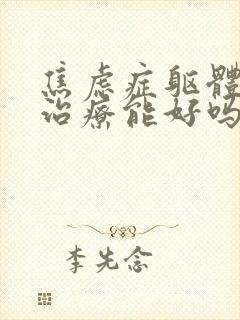 焦虑症躯體
治療能好吗
李先念